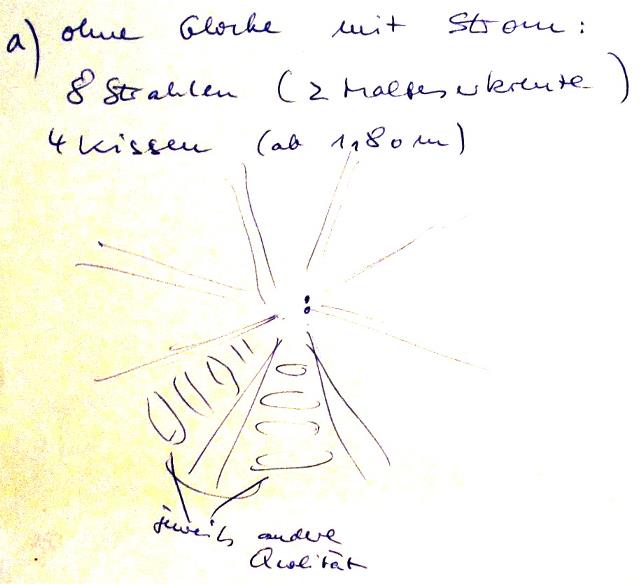 a) ohne Glocke mit Strom:
8 Strahlen (2 Malteserkreuze)
4 Kissen (ab 1,80 m)
jeweils andere
Qualität